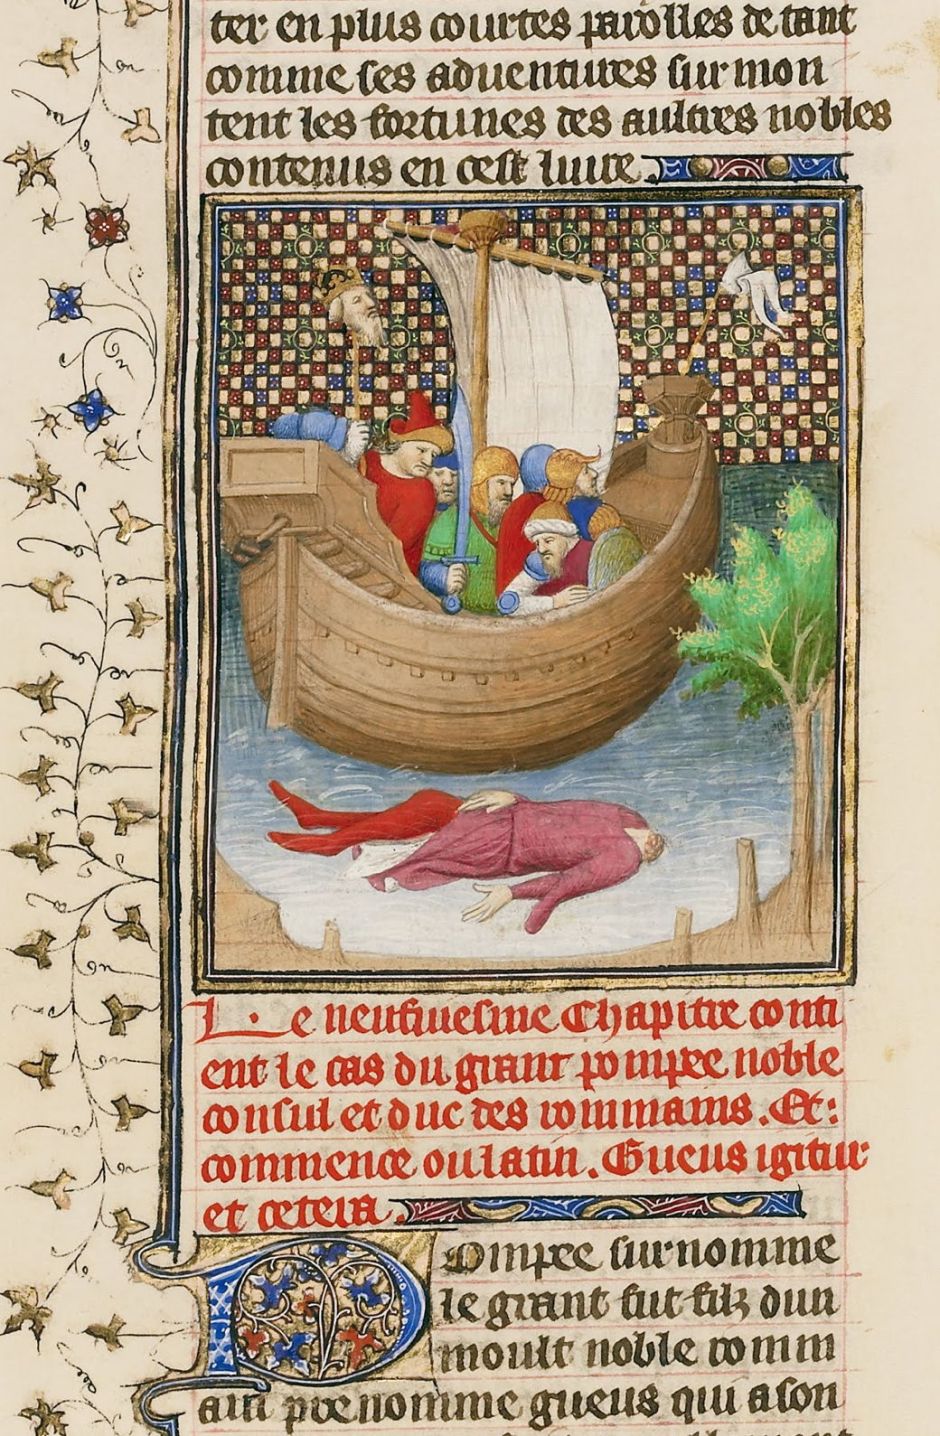 ter en plus courtes parolles de tant
comme ses aduentures surmon
tent les fortunes des aultres nobles
contenus en cest liure.
Le neufiuesme Chapitre conti
ent le cas du grant pompee noble
consul et duc des rommains. Et:
commence ou latin. Gueus igitur
et cetera.
Pompee surnomme
le grant fut filz dun
moult noble romm
ain prenomme gueus qui a son